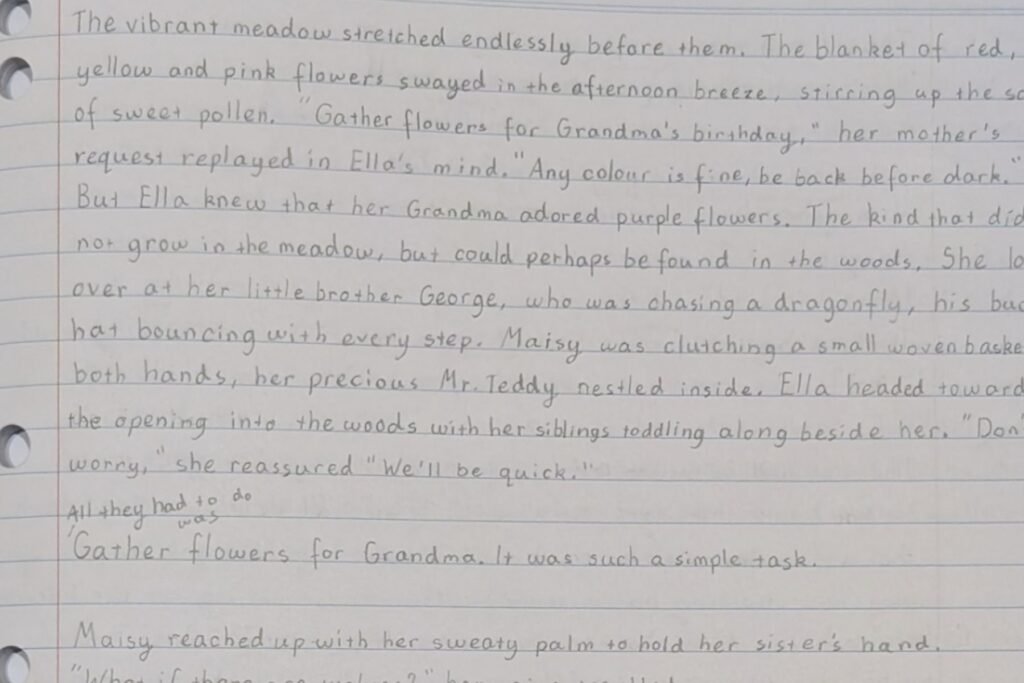 The vibrant meadow stretched endlessly before them. The blanket of red,
yellow and pink flowers swayed in the afternoon breeze, stirring up the
of sweet pollen. "Gather flowers for Grandma's birthday," her mother's
request replayed in Ella's mind. "Any colour is fine, be back before dark."
But Ella knew that her Grandma adored purple flowers. The kind that did
not grow in the meadow, but could perhaps be found in the woods. She
over at her little brother George, who was chasing a dragonfly, his
hat bouncing with every step. Maisy was clutching a small woven
both hands, her precious Mr. Teddy nestled inside. Ella headed toward
the opening into the woods with her siblings toddling along beside her. "Don'
worry," she reassured "We'll be quick."
All they had to do
was
Gather flowers for Grandma. It was such a simple task.
Maisy reached up with her sweaty palm to hold her sister's hand.
"What if